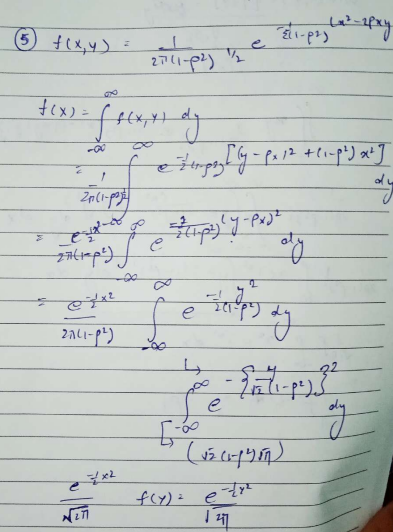 ⑤ f(x,y) = 1 / 2π(1-ρ²)^1/2 e^-1/2(1-ρ²) (x²-2ρxy
f(x) = ∫_-∞^∞ f(x,y) dy
= 1 / 2π(1-ρ²)^1/2 ∫_-∞^∞ e^-1/2(1-ρ²) [(y-ρx)² + (1-ρ²)x²] dy
= e^-1/2 x² / 2π(1-ρ²) ∫_-∞^∞ e^-1/2(1-ρ²) (y-ρx)² dy
= e^-1/2 x² / 2π(1-ρ²) ∫_-∞^∞ e^-1/2 y²/(1-ρ²) dy
↳ ∫_-∞^∞ e^-{y/√2(1-ρ²)}² dy
↳ (√2(1-ρ²)√π)
e^-1/2 x² / √2π f(y) = e^-1/2 y² / √2π